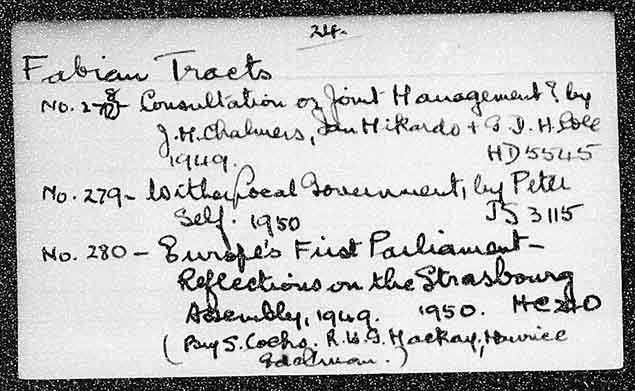 24.
Fabian Tracts
No. 278 - Consultation or Joint Management? by
J.M. Chalmers, Ian Mikardo + G.D.H. Cole
1949. HD 5545
No. 279 - Local Government, by Peter
Self. 1950 JS 3115
No. 280 - Europe's First Parliament -
Reflections on the Strasbourg
Assembly, 1949. 1950.
(By S. Cocks. R.W.G. Mackay, Maurice
Edelman.)